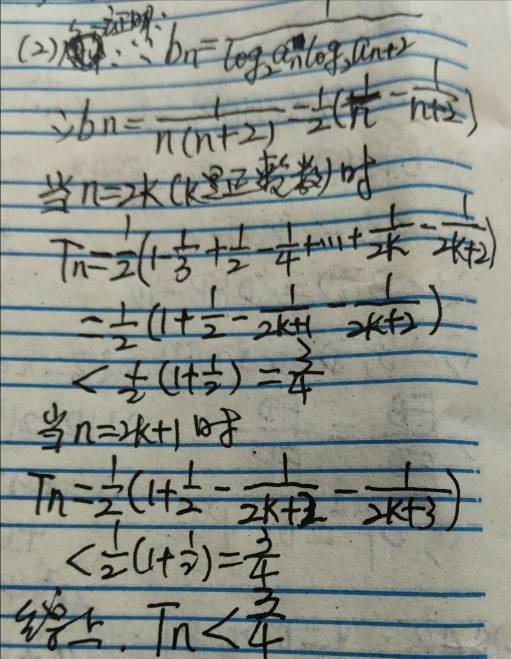 (2) 证明: ∵ bn = 1/(log₂aₙ·log₂aₙ₊₂)
∴ bn = 1/(n(n+2)) = 1/2(1/n - 1/(n+2))
当 n=2k (k是正整数) 时
Tn = 1/2(1 - 1/3 + 1/2 - 1/4 + ... + 1/2k - 1/(2k+2))
= 1/2(1 + 1/2 - 1/(2k+1) - 1/(2k+2))
< 1/2(1+1/2) = 3/4
当 n=2k+1 时
Tn = 1/2(1 + 1/2 - 1/(2k+2) - 1/(2k+3))
< 1/2(1+1/2) = 3/4
综上. Tn < 3/4